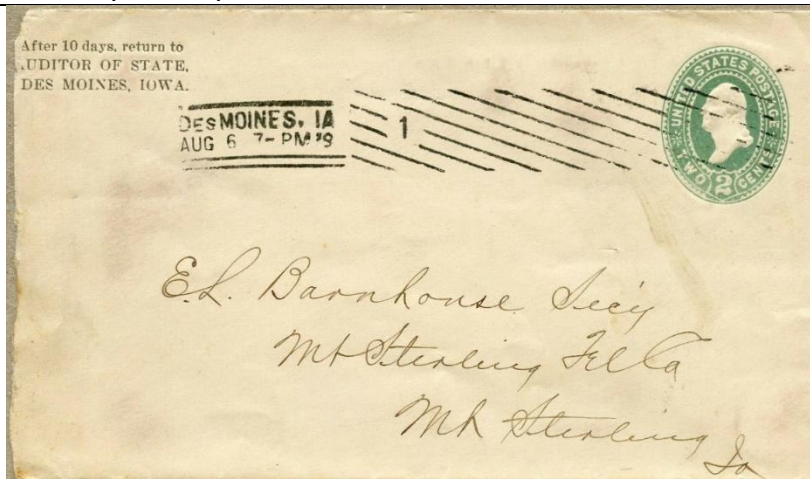 After 10 days, return to
UDITOR OF STATE,
DES MOINES, IOWA.
DES MOINES, IA
AUG 6 7-PM '9
1
UNITED STATES POSTAGE
TWO 2 CENTS
E.L. Barnhouse Secy
Mt Sterling Tel Co
Mt Sterling
Io